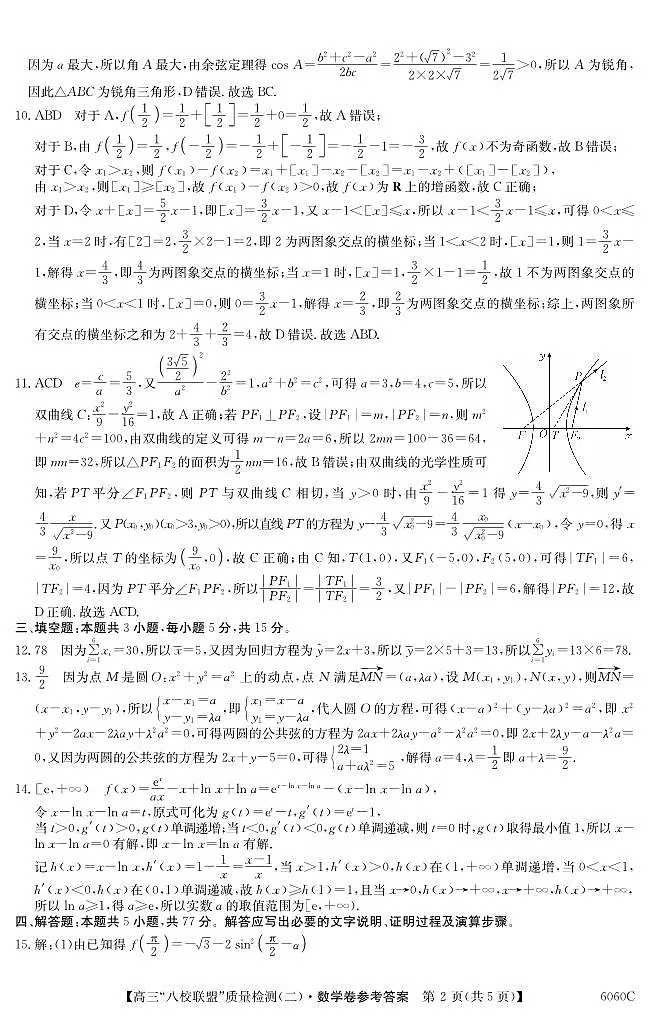 因为a最大,所以角A最大,由余弦定理得 cos A=\frac{b²+c²-a²}{2bc}=\frac{2²+(√7)²-3²}{2×2×√7}=\frac{1}{2√7}>0,所以A为锐角,
因此△ABC为锐角三角形,D错误.故选BC.
10. ABD 对于A,f(\frac{1}{2})=\frac{1}{2}+[\frac{1}{2}]=\frac{1}{2}+0=\frac{1}{2},故A错误;
对于B,由f(\frac{1}{2})=\frac{1}{2},f(-\frac{1}{2})=-\frac{1}{2}+[-\frac{1}{2}]=-\frac{1}{2}-1=-\frac{3}{2},故f(x)不为奇函数,故B错误;
对于C,令x₁>x₂,则f(x₁)-f(x₂)=x₁+[x₁]-x₂-[x₂]=x₁-x₂+([x₁]-[x₂]),
由x₁>x₂,则[x₁]≥[x₂],故f(x₁)-f(x₂)>0,故f(x)为R上的增函数,故C正确;
对于D,令x+[x]=\frac{5}{2}x-1,即[x]=\frac{3}{2}x-1,又x-1<[x]≤x,所以x-1<\frac{3}{2}x-1≤x,可得0<x≤
2,当x=2时,有[2]=2,\frac{3}{2}×2-1=2,即2为两图象交点的横坐标;当1<x<2时,[x]=1,则1=\frac{3}{2}x-
1,解得x=\frac{4}{3},即\frac{4}{3}为两图象交点的横坐标;当x=1时,[x]=1,\frac{3}{2}×1-1=\frac{1}{2},故1不为两图象交点的
横坐标;当0<x<1时,[x]=0,则0=\frac{3}{2}x-1,解得x=\frac{2}{3},即\frac{2}{3}为两图象交点的横坐标;综上,两图象所
有交点的横坐标之和为2+\frac{4}{3}+\frac{2}{3}=4,故D错误.故选ABD.
11. ACD e=\frac{c}{a}=\frac{5}{3},又\frac{(\frac{3√5}{2})²}{a²}-\frac{2²}{b²}=1,a²+b²=c²,可得a=3,b=4,c=5,所以
双曲线C:\frac{x²}{9}-\frac{y²}{16}=1,故A正确;若PF₁⊥PF₂,设|PF₁|=m,|PF₂|=n,则m²
+n²=4c²=100,由双曲线的定义可得m-n=2a=6,所以2mn=100-36=64,
即mn=32,所以△PF₁F₂的面积为\frac{1}{2}mn=16,故B错误;由双曲线的光学性质可
y
P
l₂
l₁
F
O
T
F₂
x
知,若PT平分∠F₁PF₂,则PT与双曲线C相切,当y>0时,由\frac{x²}{9}-\frac{y²}{16}=1得y=\frac{4}{3}√(x²-9),则y′=
\frac{4}{3}\frac{x}{√(x²-9)}.又P(x₀,y₀)(x₀>3,y₀>0),所以直线PT的方程为y-\frac{4}{3}√(x₀²-9)=\frac{4}{3}\frac{x₀}{√(x₀²-9)}(x-x₀),令y=0,得x
=\frac{9}{x₀},所以点T的坐标为(\frac{9}{x₀},0),故C正确;由C知,T(1,0),又F₁(-5,0),F₂(5,0),可得|TF₁|=6,
|TF₂|=4,因为PT平分∠F₁PF₂,所以\frac{|PF₁|}{|PF₂|}=\frac{|TF₁|}{|TF₂|}=\frac{3}{2},又|PF₁|-|PF₂|=6,解得|PF₂|=12,故
D正确.故选ACD.
三、填空题:本题共3小题,每小题5分,共15分。
12. 78 因为\sum_{i=1}^{6}xᵢ=30,所以x̄=5,又因为回归方程为ŷ=2x+3,所以ȳ=2×5+3=13,所以\sum_{i=1}^{6}yᵢ=13×6=78.
13. \frac{9}{2} 因为点M是圆O:x²+y²=a²上的动点,点N满足\overrightarrow{MN}=(a,λa),设M(x₁,y₁),N(x,y),则\overrightarrow{MN}=
(x-x₁,y-y₁),所以{x-x₁=a, y-y₁=λa,即{x₁=x-a, y₁=y-λa,代入圆O的方程,可得(x-a)²+(y-λa)²=a²,即x²
+y²-2ax-2λay+λ²a²=0,可得两圆的公共弦的方程为2ax+2λay-a²-λ²a²=0,即2x+2λy-a-λ²a=
0,又因为两圆的公共弦的方程为2x+y-5=0,可得{2λ=1 a+aλ²=5,解得a=4,λ=\frac{1}{2}即a+λ=\frac{9}{2}.
14. [e,+∞) f(x)=\frac{eˣ}{ax}-x+ln x+ln a=e^{x-ln x-ln a}-(x-ln x-ln a),
令x-ln x-ln a=t,原式可化为g(t)=eᵗ-t,g′(t)=eᵗ-1,
当t>0,g′(t)>0,g(t)单调递增;当t<0,g′(t)<0,g(t)单调递减,则t=0时,g(t)取得最小值1,所以x-
ln x-ln a=0有解,即x-ln x=ln a有解.
记h(x)=x-ln x,h′(x)=1-\frac{1}{x}=\frac{x-1}{x},当x>1,h′(x)>0,h(x)在(1,+∞)单调递增,当0<x<1,
h′(x)<0,h(x)在(0,1)单调递减,故h(x)≥h(1)=1,且当x→0,h(x)→+∞,x→+∞,h(x)→+∞,
所以ln a≥1,得a≥e,所以实数a的取值范围为[e,+∞).
四、解答题:本题共5小题,共77分。解答应写出必要的文字说明、证明过程及演算步骤。
15. 解:(1)由已知得f(\frac{π}{2})=-√3-2 sin²(\frac{π}{2}-α)
【高三“八校联盟”质量检测(二)·数学卷参考答案 第2页(共5页)】 6060C